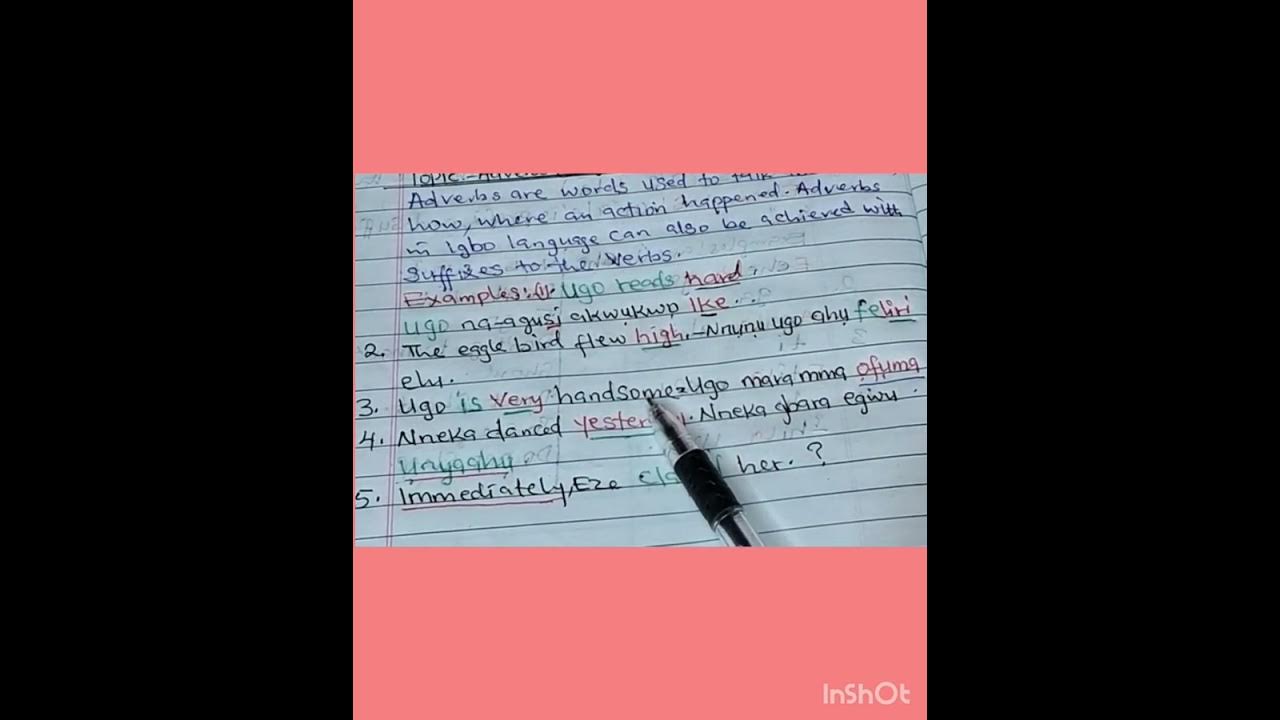 Topic:-Adverbs
Adverbs are words used to talk
how, where an action happened. Adverbs
in Igbo language can also be achieved with
suffixes to the verbs.
Examples:(1). Ugo reads hard.
Ugo na-agusị akwụkwọ ike.
2. The eagle bird flew high. -Nnụnụ ugo ahụ feliri
elu.
3. Ugo is very handsome=Ugo mara mma ofuma
4. Nneka danced yester. Nneka gbara egwu
ụnyaahụ
5. Immediately, Eze her. ?
InShOt